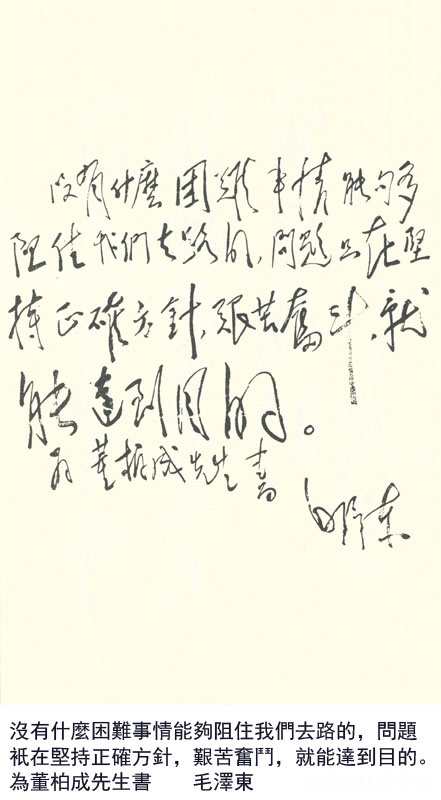 沒有什麼困難事情能夠
阻住我們去路的，問題只在堅
持正確方針，艱苦奮斗，就
能達到目的。
為董柏成先生書
毛澤東
沒有什麼困難事情能夠阻住我們去路的，問題
衹在堅持正確方針，艱苦奮鬥，就能達到目的。
為董柏成先生書　　毛澤東